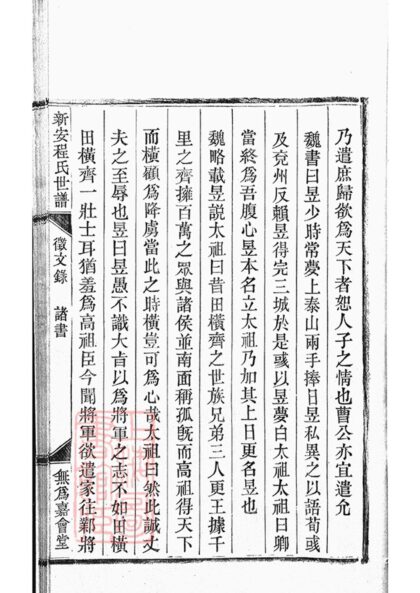 乃遣庶歸欲為天下者恕人子之情也曹公亦宜遣允
魏書曰昱少時常夢上泰山兩手捧日昱私異之以語荀彧
及兗州反賴昱得完三城於是彧以昱夢白太祖太祖曰卿
當終為吾腹心昱本名立太祖乃加其上日更名昱也
魏略載昱說太祖曰昔田橫齊之世族兄弟三人更王據千
里之齊擁百萬之眾與諸侯並南面稱孤旣而高祖得天下
而橫顧為降虜當此之時橫豈可為心哉太祖曰然此誠丈
夫之至辱也昱曰昱愚不識大旨以為將軍之志不如田橫
田橫齊一壯士耳猶羞為高祖臣今聞將軍欲遣家往鄴將
新安程氏世譜
徵文錄
諸書
無為嘉會堂